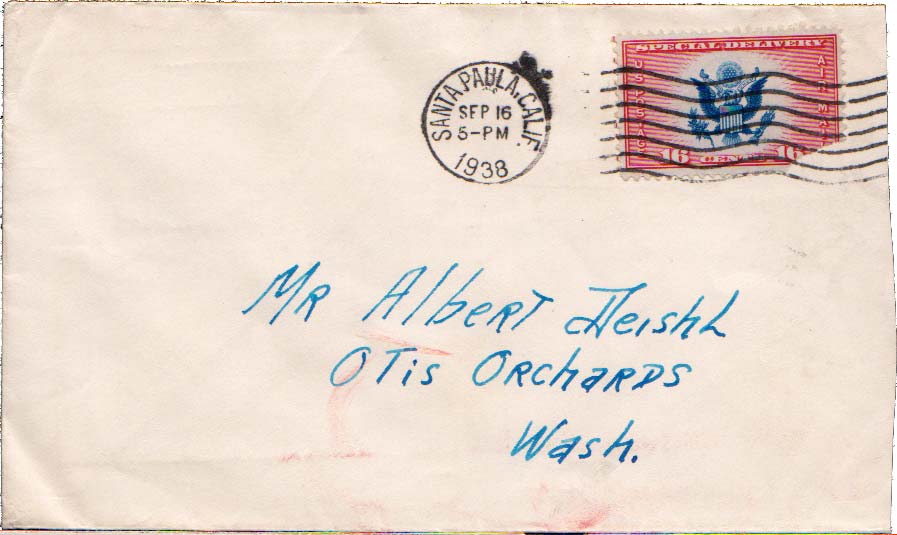 SANTA PAULA, CALIF.
SEP 16
5-PM
1938
SPECIAL DELIVERY
U.S. POSTAGE
AIR MAIL
16 CENTS 16
Mr Albert
Otis Orchards
Wash.